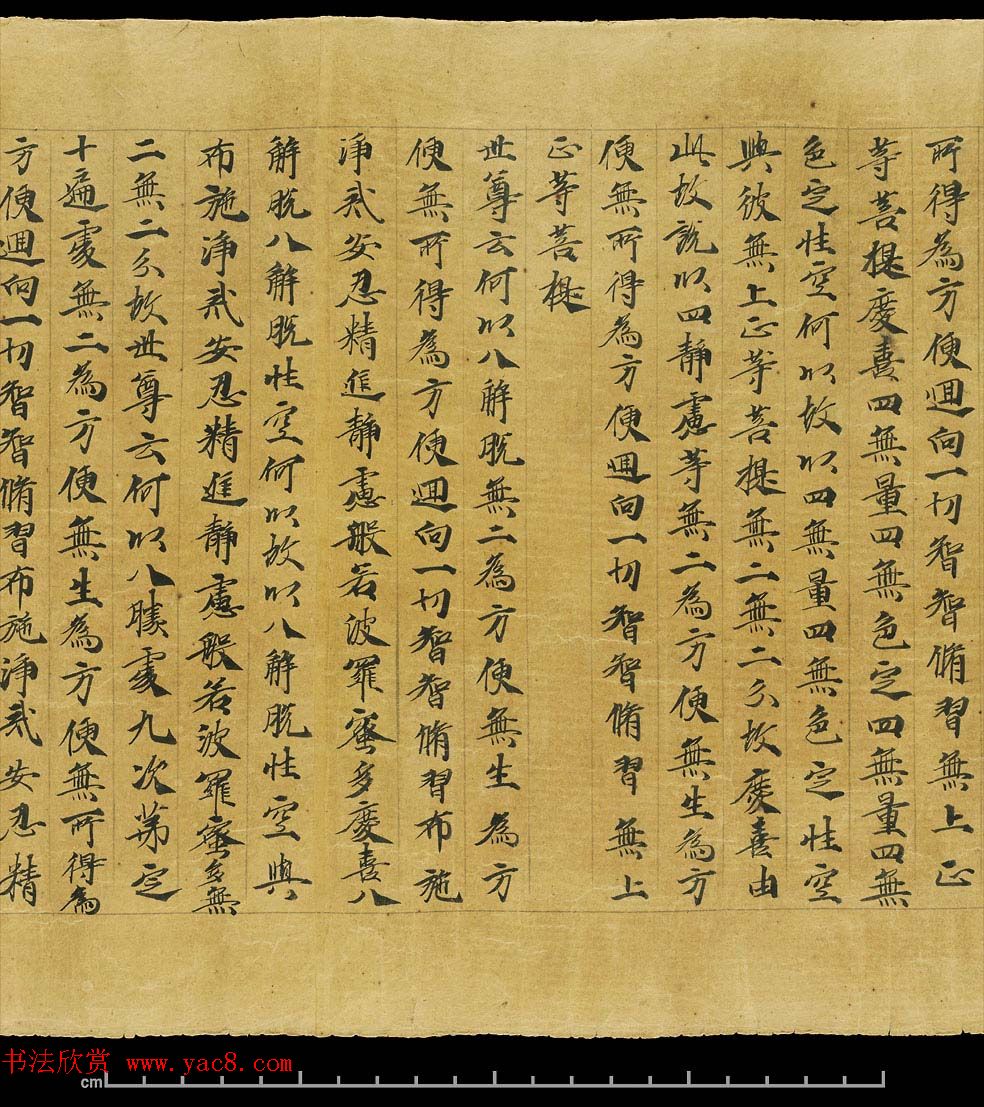 所得為方便迴向一切智智脩習無上正
等菩提慶喜四無量四無色定四無量四無
色定性空何以故以四無量四無色定性空
與彼無上正等菩提無二無二分故慶喜由
此故說以四靜慮等無二為方便無生為方
便無所得為方便迴向一切智智脩習無上
正等菩提
世尊云何以八解脫無二為方便無生為方
便無所得為方便迴向一切智智脩習布施
淨戒安忍精進靜慮般若波羅蜜多慶喜八
解脫八解脫性空何以故以八解脫性空與
布施淨戒安忍精進靜慮般若波羅蜜多無
二無二分故世尊云何以八勝處九次第定
十遍處無二為方便無生為方便無所得為
方便迴向一切智智脩習布施淨戒安忍精
书法欣赏 www.yac8.com
cm